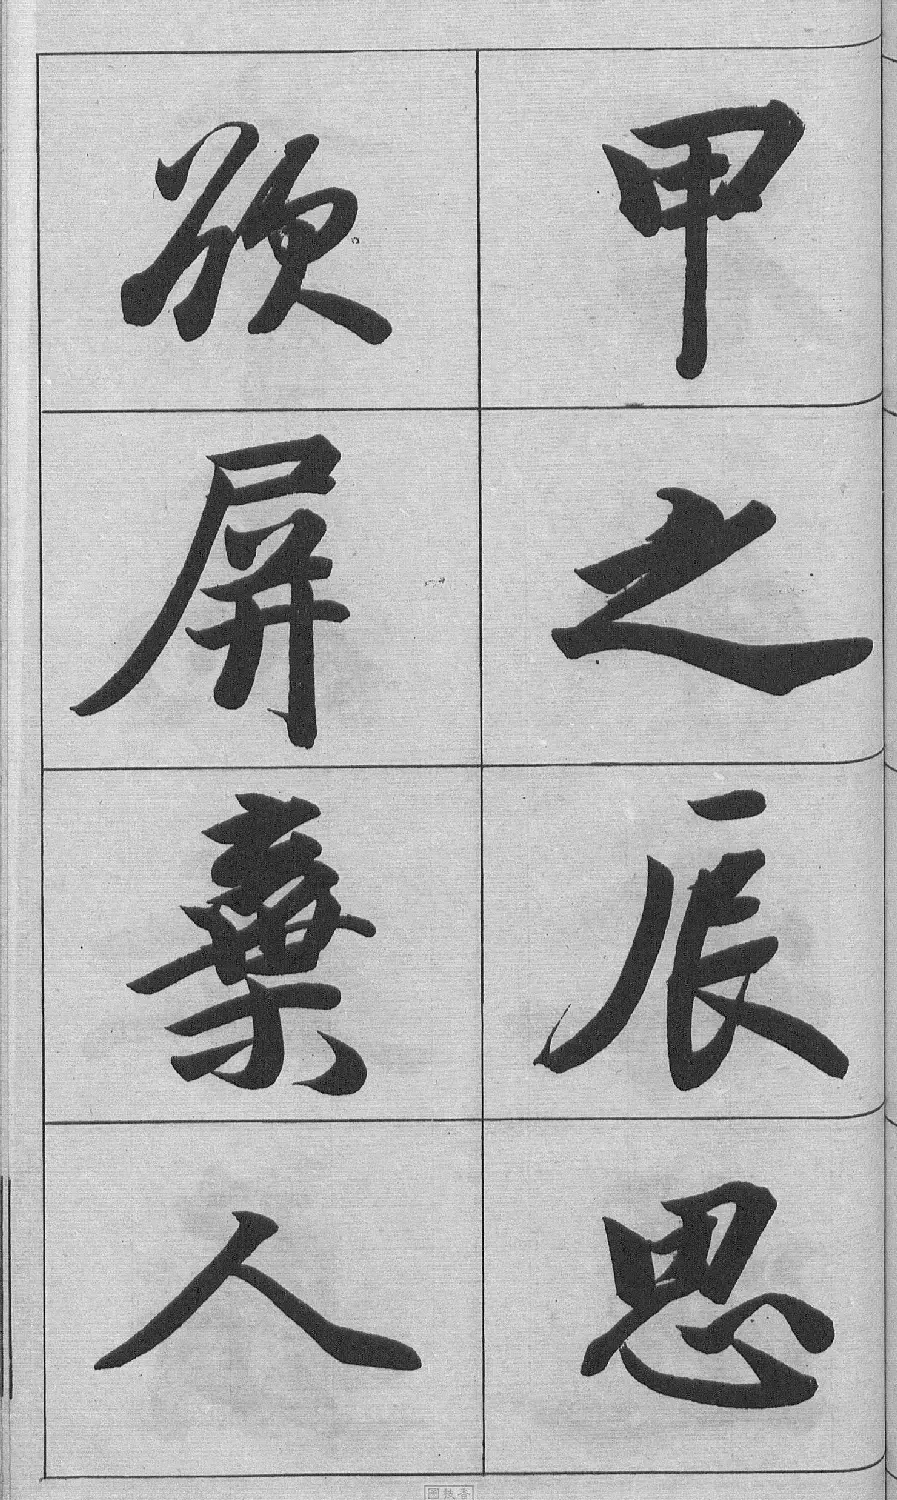 甲之辰思
欲屏棄人